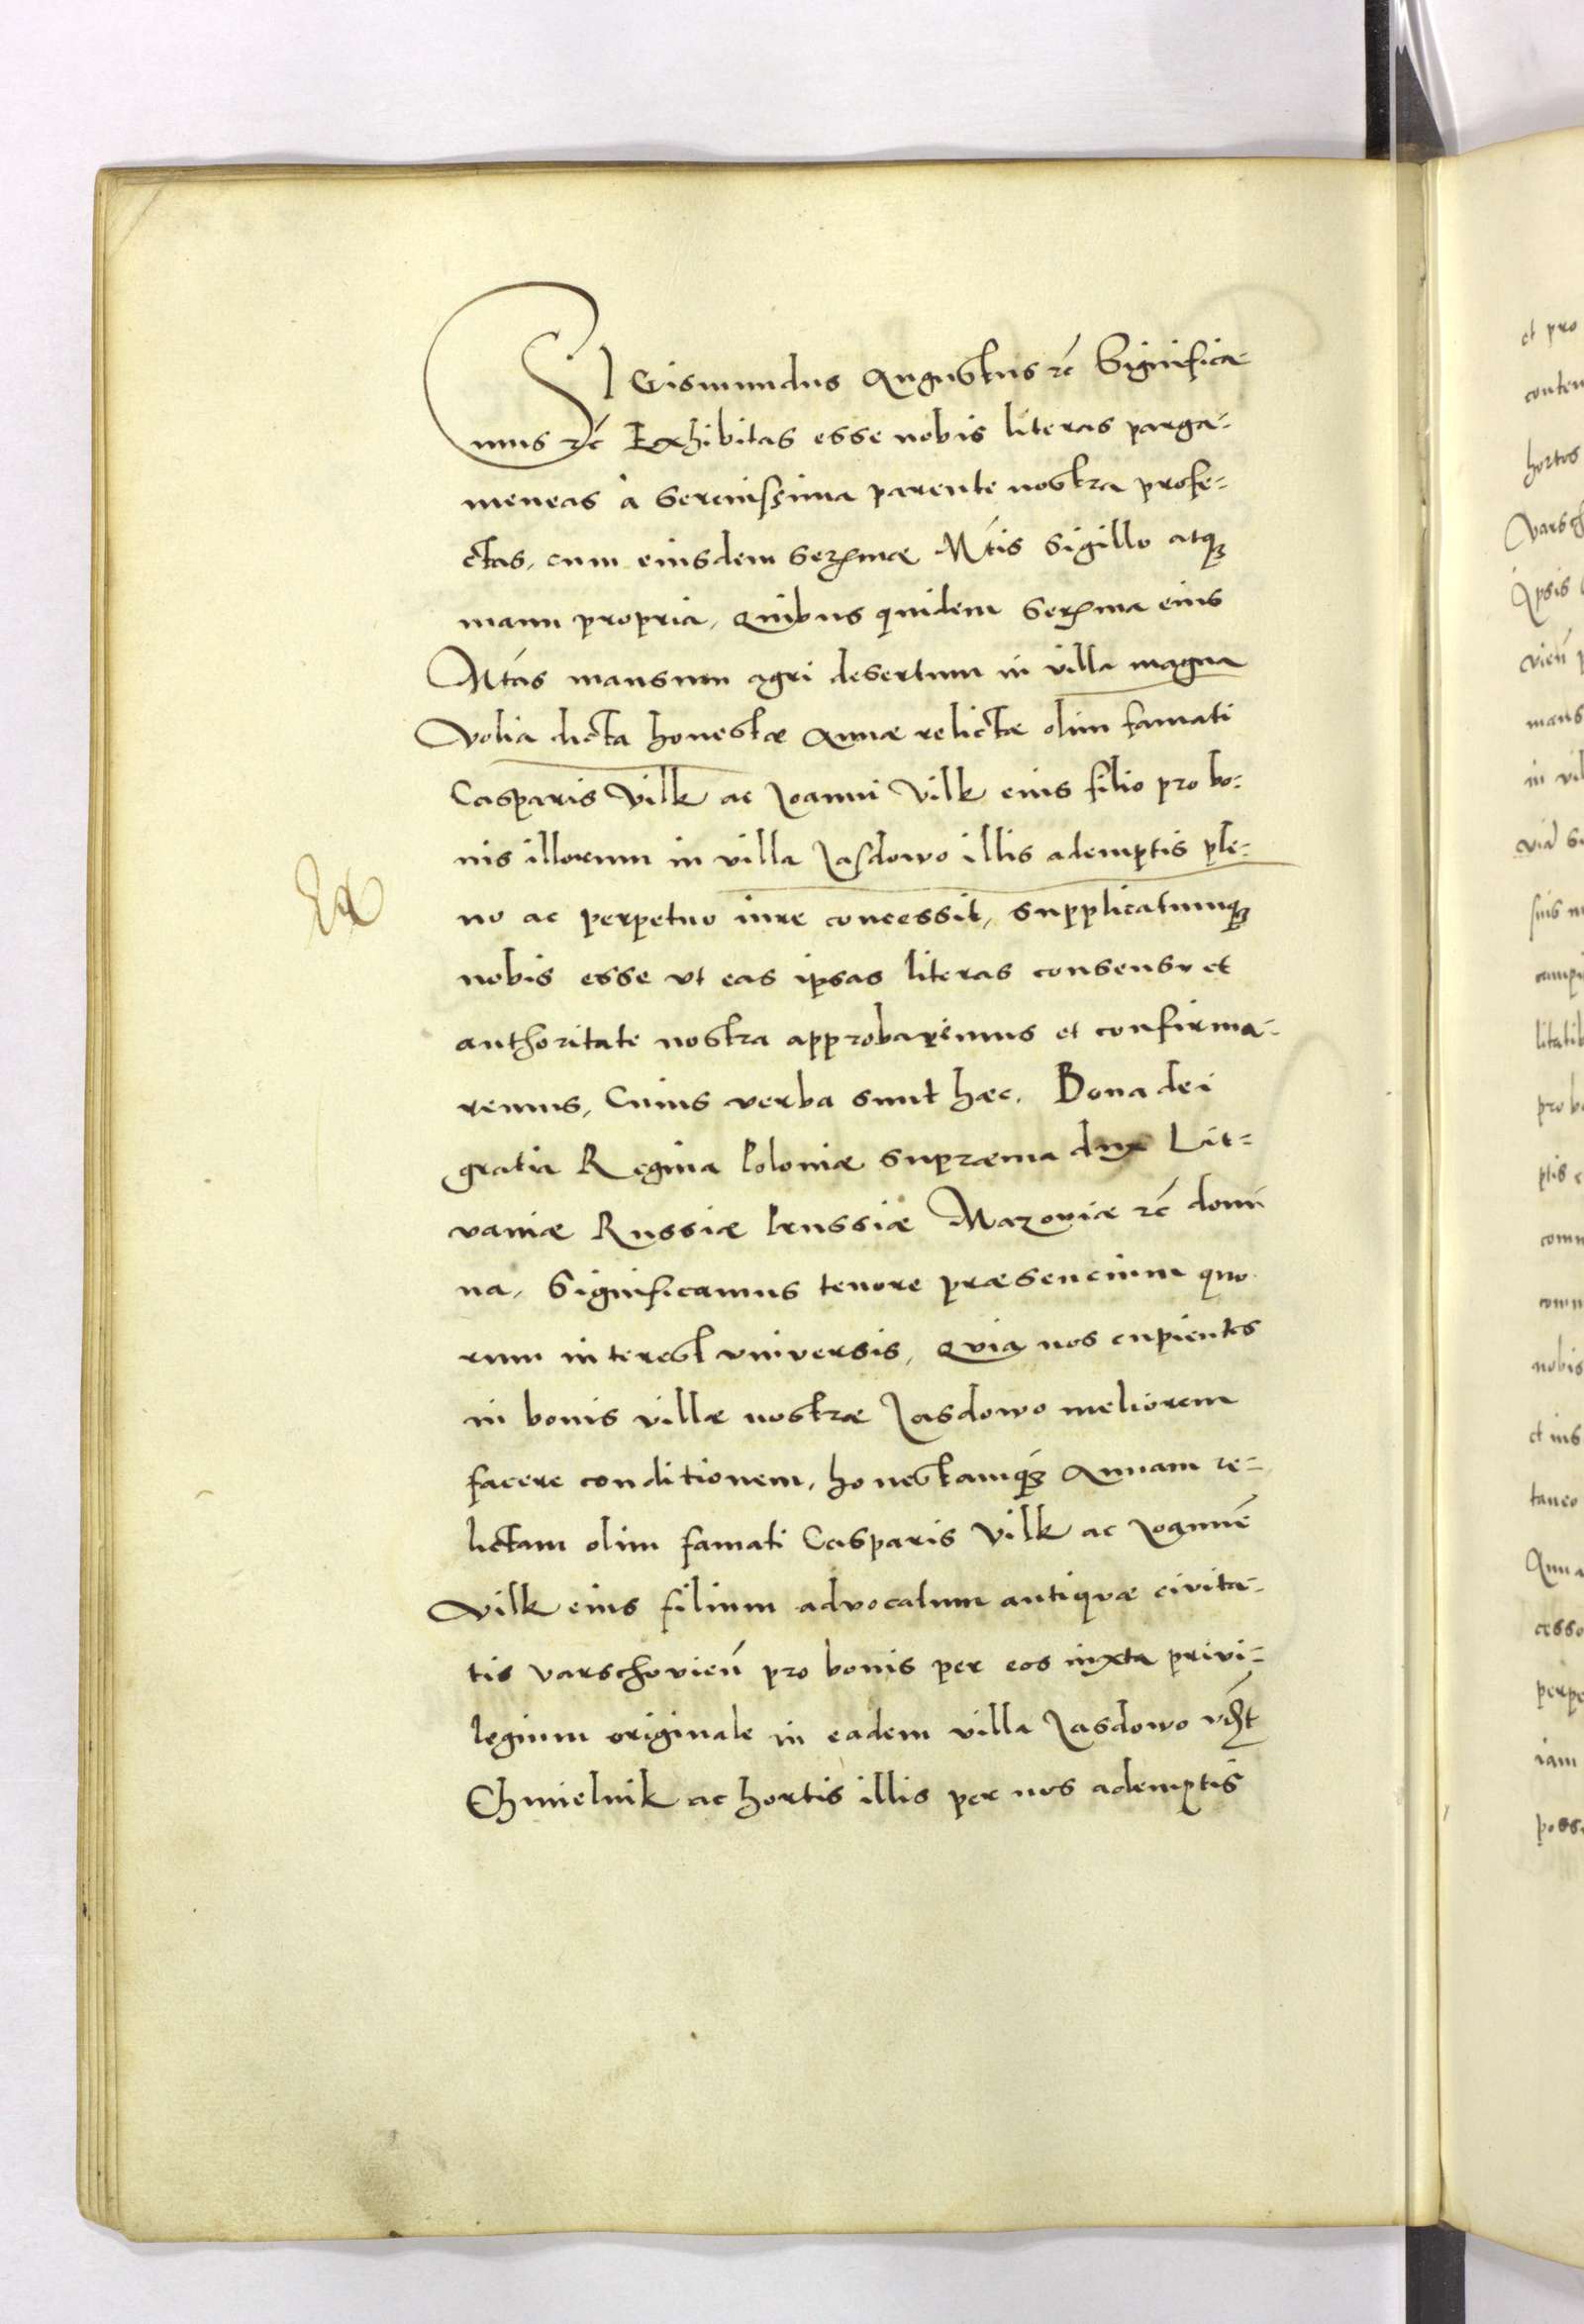 SIGismundus Augustus rc̃ Significa-
mus rc̃ Exhibitas esse nobis literas parga-
meneas à serenissima parente nostra profe-
ctas, cum eiusdem Serꝫmæ Mtis sigillo atqꝫ
manu propria, Quibus quidem Serꝫma eius
Mtas mansum agri desertum in villa magna
Volia dicta honestæ Annæ relictæ olim famati
Casparis Vilk ac Joanni Vilk eius filio pro bo-
nis illorum in villa Jasdowo illis ademptis ple-
no ac perpetuo iure concessit, supplicatumqꝫ
nobis esse vt eas ipsas literas consensv et
authoritate nostra approbaremus et confirma-
remus, Cuius verba sunt hæc. Bona dei
gratia Regina Poloniæ supræma dux Lit-
vaniæ Russiæ Prussiæ Mazoviæ rc̃ domi
na, Significamus tenore præsencium quo
rum interest vniversis, Qvia nos cupientes
in bonis villæ nostræ Jasdowo meliorem
facere conditionem, honestamqꝫ Annam re-
lictam olim famati Casparis Vilk ac Joannẽ
Vilk eius filium advocatum antiqvæ civita-
tis Varschovieñ pro bonis per eos iuxta privi-
legium originale in eadem villa Jasdowo vꝫt
Chmielnik ac hortis illis per nos ademptis
et pro
hortos
Ipsis
in vil
nobis
iam